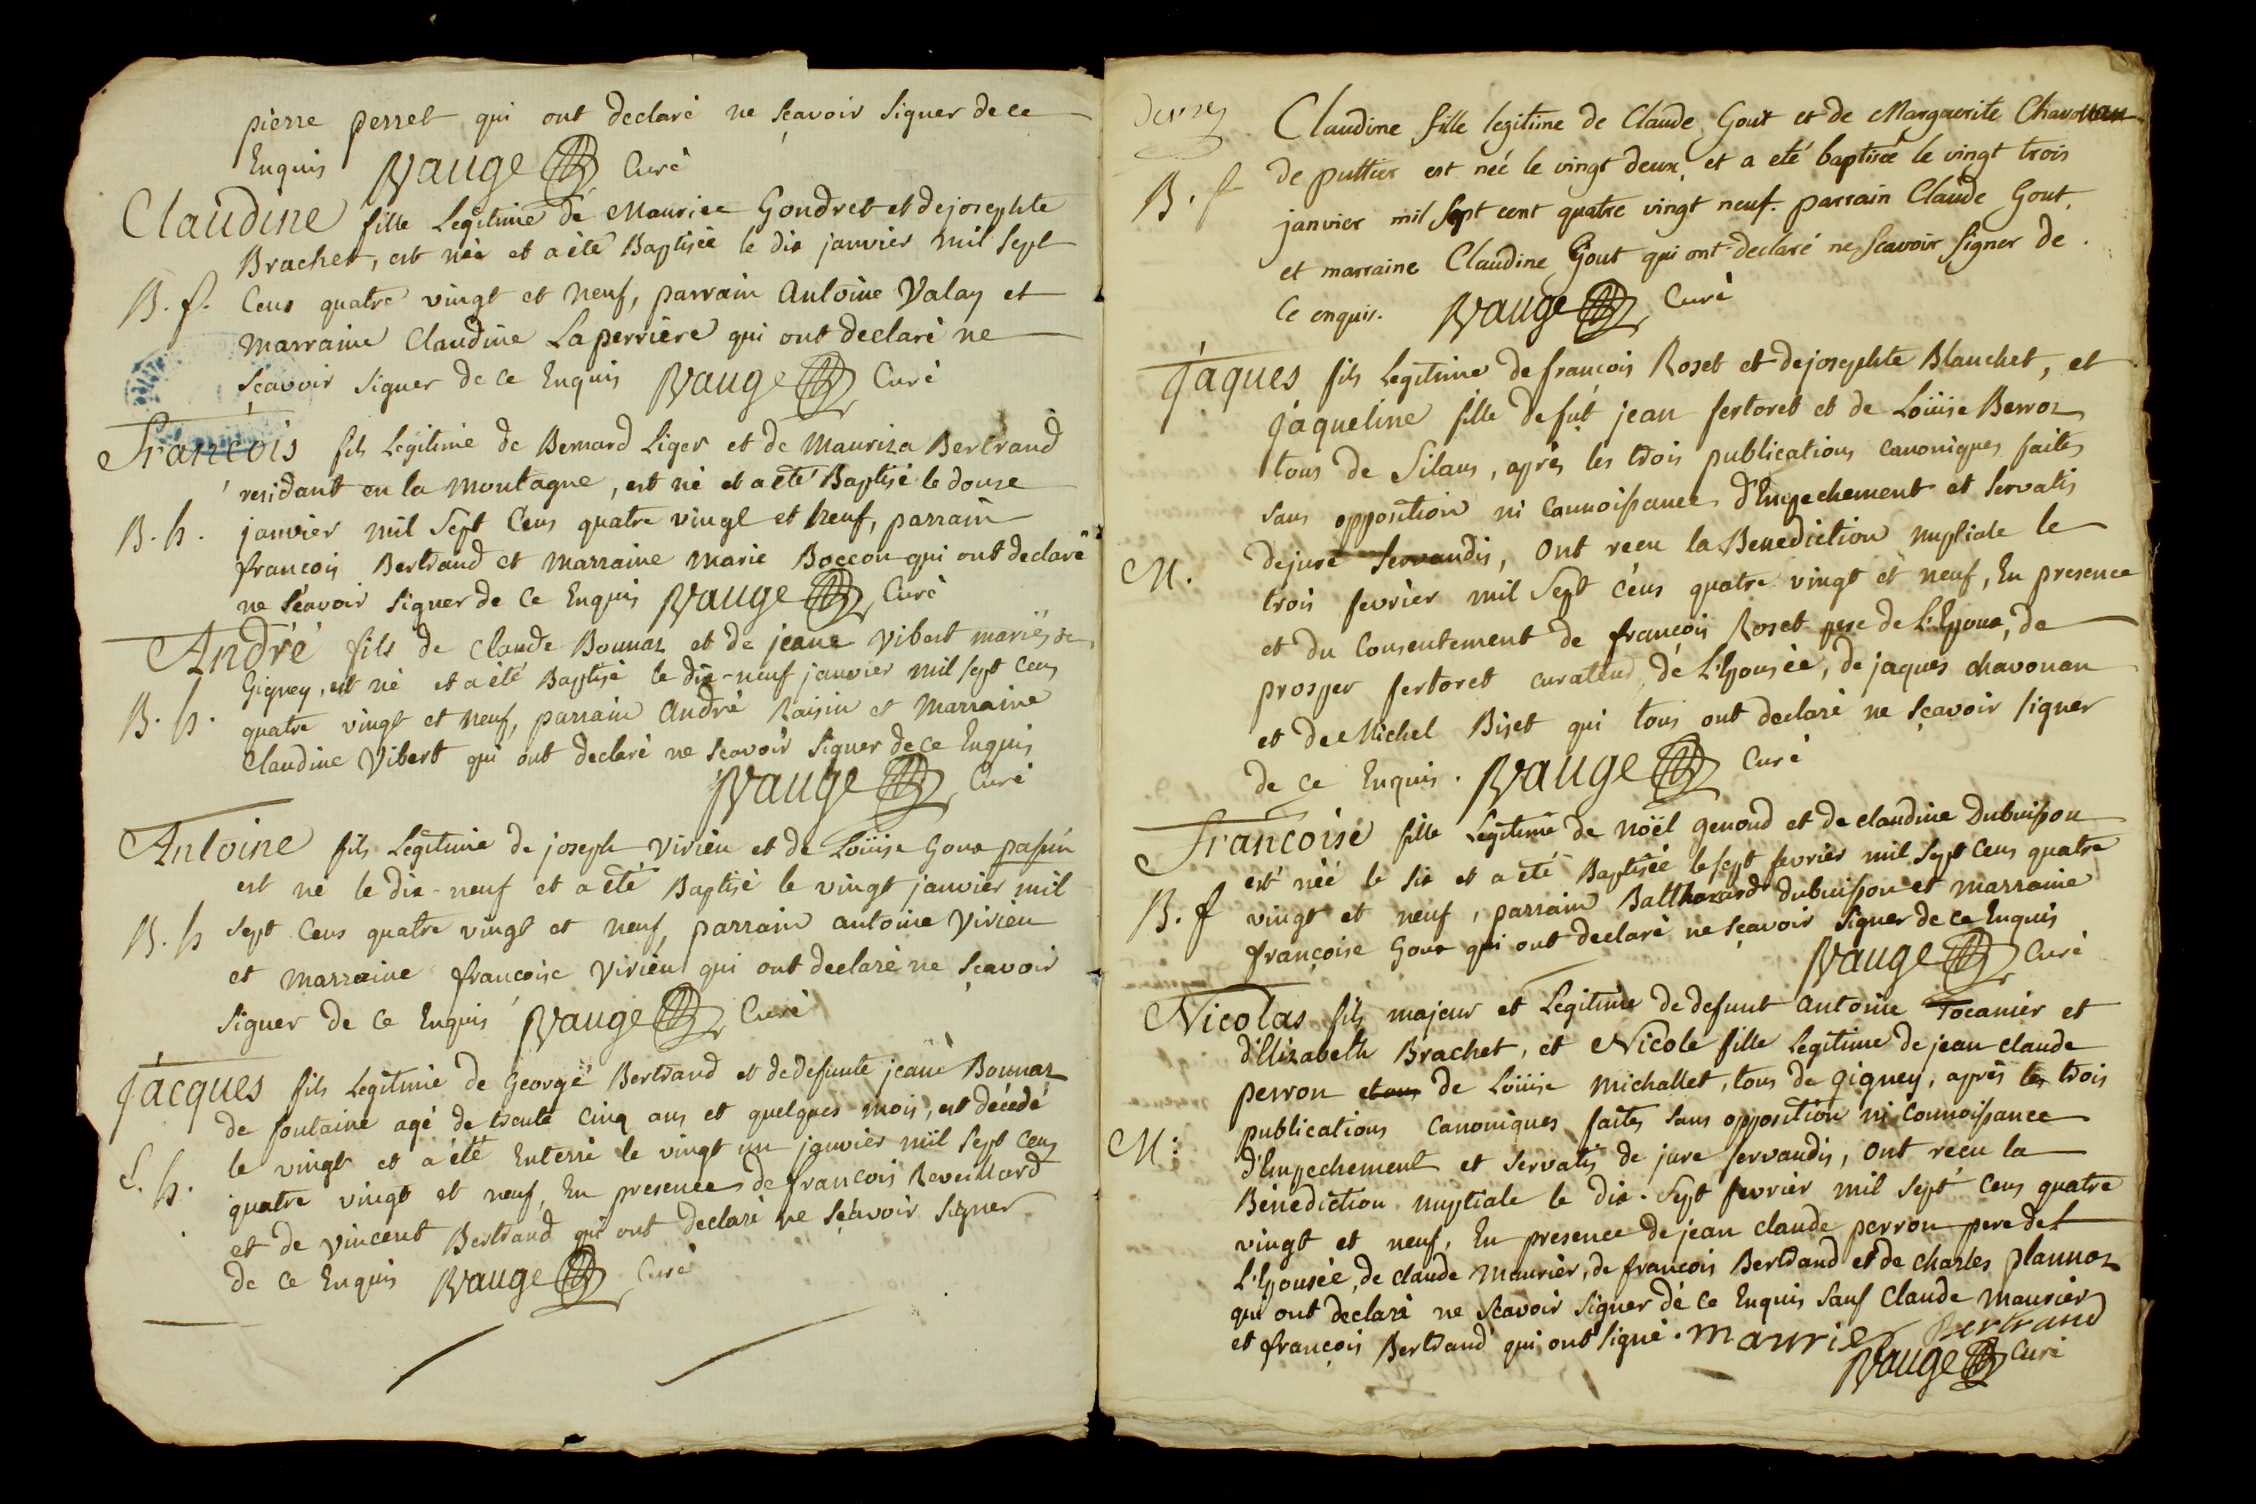 pierre perret qui ont declaré ne sçavoir signer de ce
Enquis RVauge Curé
Claudine fille Legitime de Maurice Gondret et de josephte
Brachet, est née et a été Baptisée le dix janvier mil sept
B. f. Cens quatre vingt et neuf, parrain antoine Valay et
Marraine Claudine Laperriere qui ont declaré ne
sçavoir signer de ce Enquis RVauge Curé
François fils Legitime de Bernard Liger et de Mauriza Bertrand
residant en la Montagne, est né et a été Baptisé le douze
B. h. janvier mil sept Cens quatre vingt et neuf, parrain
francois Bertrand et Marraine Marie Boccon qui ont declaré
ne sçavoir signer de Ce Enquis RVauge Curé
André fils de Claude Bonnaz et de jeane Vibert mariés de
Gigney, est né et a été Baptisé le dix-neuf janvier mil sept Cens
B. h. quatre vingt et neuf, parrain andré Raisin et Marraine
Claudine Vibert qui ont declaré ne sçavoir signer de ce Enquis
RVauge Curé
Antoine fils Legitime de joseph Vivien et de Loüise Goux
est né le dix-neuf et a été Baptisé le vingt janvier mil
B. h sept Cens quatre vingt et neuf, parrain antoine Vivien
et Marraine françoise Vivien qui ont declaré ne sçavoir
signer de Ce Enquis RVauge Curé
Jacques fils Legitime de George Bertrand et de defunte jeane Bonnaz
de fontaine agé de trente Cinq ans et quelques mois, est décédé
S. h. le vingt et a été Enterré le vingt un janvier mil sept Cens
quatre vingt et neuf, En presence de francois Reveillard
et de vincent Bertrand qui ont declaré ne sçavoir signer
de Ce Enquis RVauge Curé
Claudine fille legitime de Claude Gout et de Marguerite Chavonan
B. f de puttier est née le vingt deux et a eté baptisée le vingt trois
janvier mil sept cent quatre vingt neuf. parrain Claude Gout,
et marraine Claudine Gout qui ont declaré ne scavoir signer de
Ce enquis. RVauge Curé
Jaques fils Legitime de françois Roset et de josephte Blanchet, et
Jaqueline fille de fût jean fertoret et de Loüise Berroz
tous de Silans, après les trois publications canoniques faites
sans opposition ni Connoissance d'Empechement et servatis
M. de jure servandis, Ont reçu la Benediction nuptiale le
trois fevrier mil sept Cens quatre vingt et neuf, En presence
et du Consentement de françois Roset pere de L'Epoux, de
prosper fertoret curateur de L'Epousée, de jaques chavonan
et de Michel Biset qui tous ont declaré ne sçavoir signer
de ce Enquis. RVauge Curé
Francoise fille Legitime de Noël genoud et de claudine Dubuisson
est née le six et a été Baptisée le sept fevrier mil sept Cens quatre
B. f vingt et neuf, parrain Balthazard dubuisson et marraine
françoise Goux qui ont declaré ne sçavoir signer de ce Enquis
RVauge Curé
Nicolas fils majeur et Legitime de defunt antoine Tocanier et
d'Elizabeth Brachet, et Nicole fille Legitime de jean claude
perron de Loüise Michallet, tous de gigney, après les trois
M: publications Canoniques faites sans opposition ni Connoissance
d'Empechement et servatis de jure servandis, Ont reçu la
Bénediction nuptiale le dix-sept fevrier mil sept Cens quatre
vingt et neuf, En presence de jean claude perron pere de
L'Epousée, de claude Maurier, de francois Bertrand et de Charles plannoz
qui ont declaré ne sçavoir signer de Ce Enquis sauf Claude Maurier
et françois Bertrand qui ont signé. maurier Bertrand
RVauge Curé